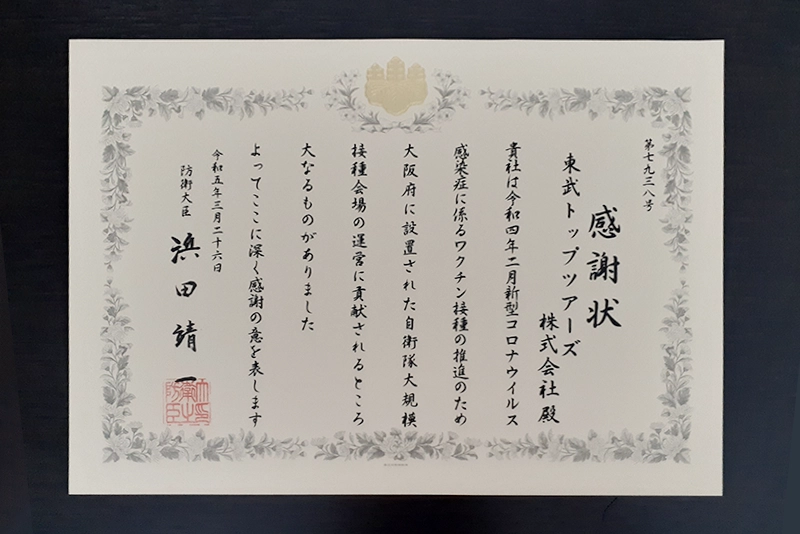 第七九三八号
感謝状
東武トップツアーズ
株式会社殿
貴社は令和四年二月新型コロナウイルス
感染症に係るワクチン接種の推進のため
大阪府に設置された自衛隊大規模
接種会場の運営に貢献されるところ
大なるものがありました
よってここに深く感謝の意を表します
令和五年三月二十六日
防衛大臣 浜田靖一